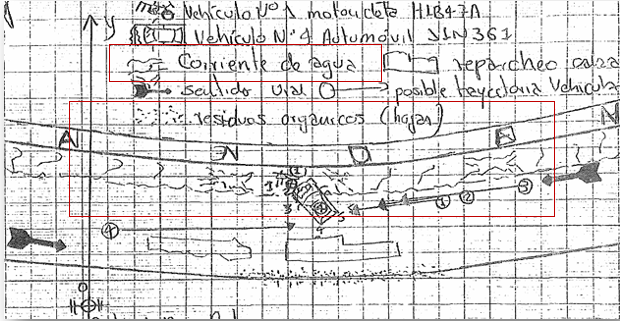 Vehículo Nº 1 motocicleta H1B47A
Vehículo Nº 4 Automóvil JIN361
Corriente de agua reparcheo calza
sentido vial posible trayectoria Vehicula
residuos orgánicos (hojas)
y
A N D E N
1 2 3
4
O